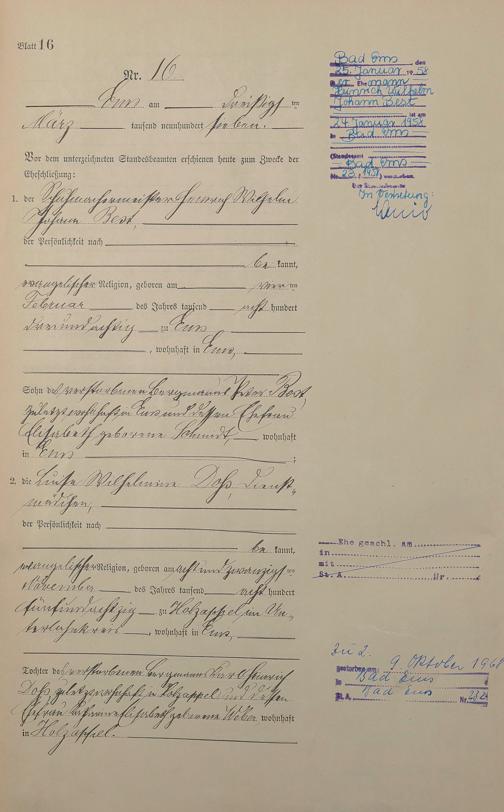 Blatt 16
Nr. 16
Ems am dreißigsten
März tausend neunhundert sieben.
Vor dem unterzeichneten Standesbeamten erschienen heute zum Zwecke der
Eheschließung:
1. der Schuhmachermeister Heinrich Wilhelm
Johann Best,
der Persönlichkeit nach
be kannt,
evangelischer Religion, geboren am vierten
Februar des Jahres tausend acht hundert
dreiundachtzig zu Ems
, wohnhaft in Ems,
Sohn des verstorbenen Bergmanns Peter Best,
zuletzt wohnhaft in Ems und dessen Ehefrau
Elisabeth geborene Schmidt, wohnhaft
in Ems ;
2. die Luise Wilhelmine Doß, Dienst-
mädchen,
der Persönlichkeit nach
be kannt,
evangelischer Religion, geboren am acht und zwanzigsten
November des Jahres tausend acht hundert
fünfundachtzig zu Holzappel, im Un-
terlahnkreis, wohnhaft in Ems,
Tochter des verstorbenen Bergmanns Karl Heinrich
Doß zuletzt wohnhaft in Holzappel und dessen
Ehefrau Elisabeth geborene Weber wohnhaft
in Holzappel.
Bad Ems, den
25. Januar 1958
Der Ehemann
Heinrich Wilhelm
Johann Best
ist am
24. Januar 1958
in Bad Ems
(Standesamt
Bad Ems
Nr. 23/1958) verstorben.
Der Standesbeamte
In Vertretung:
Ehe geschl. am
in
mit
St. A. Nr.
Zu 2.
gestorben am 9. Oktober 1968
in Bad Ems
St. A. Bad Ems Nr.